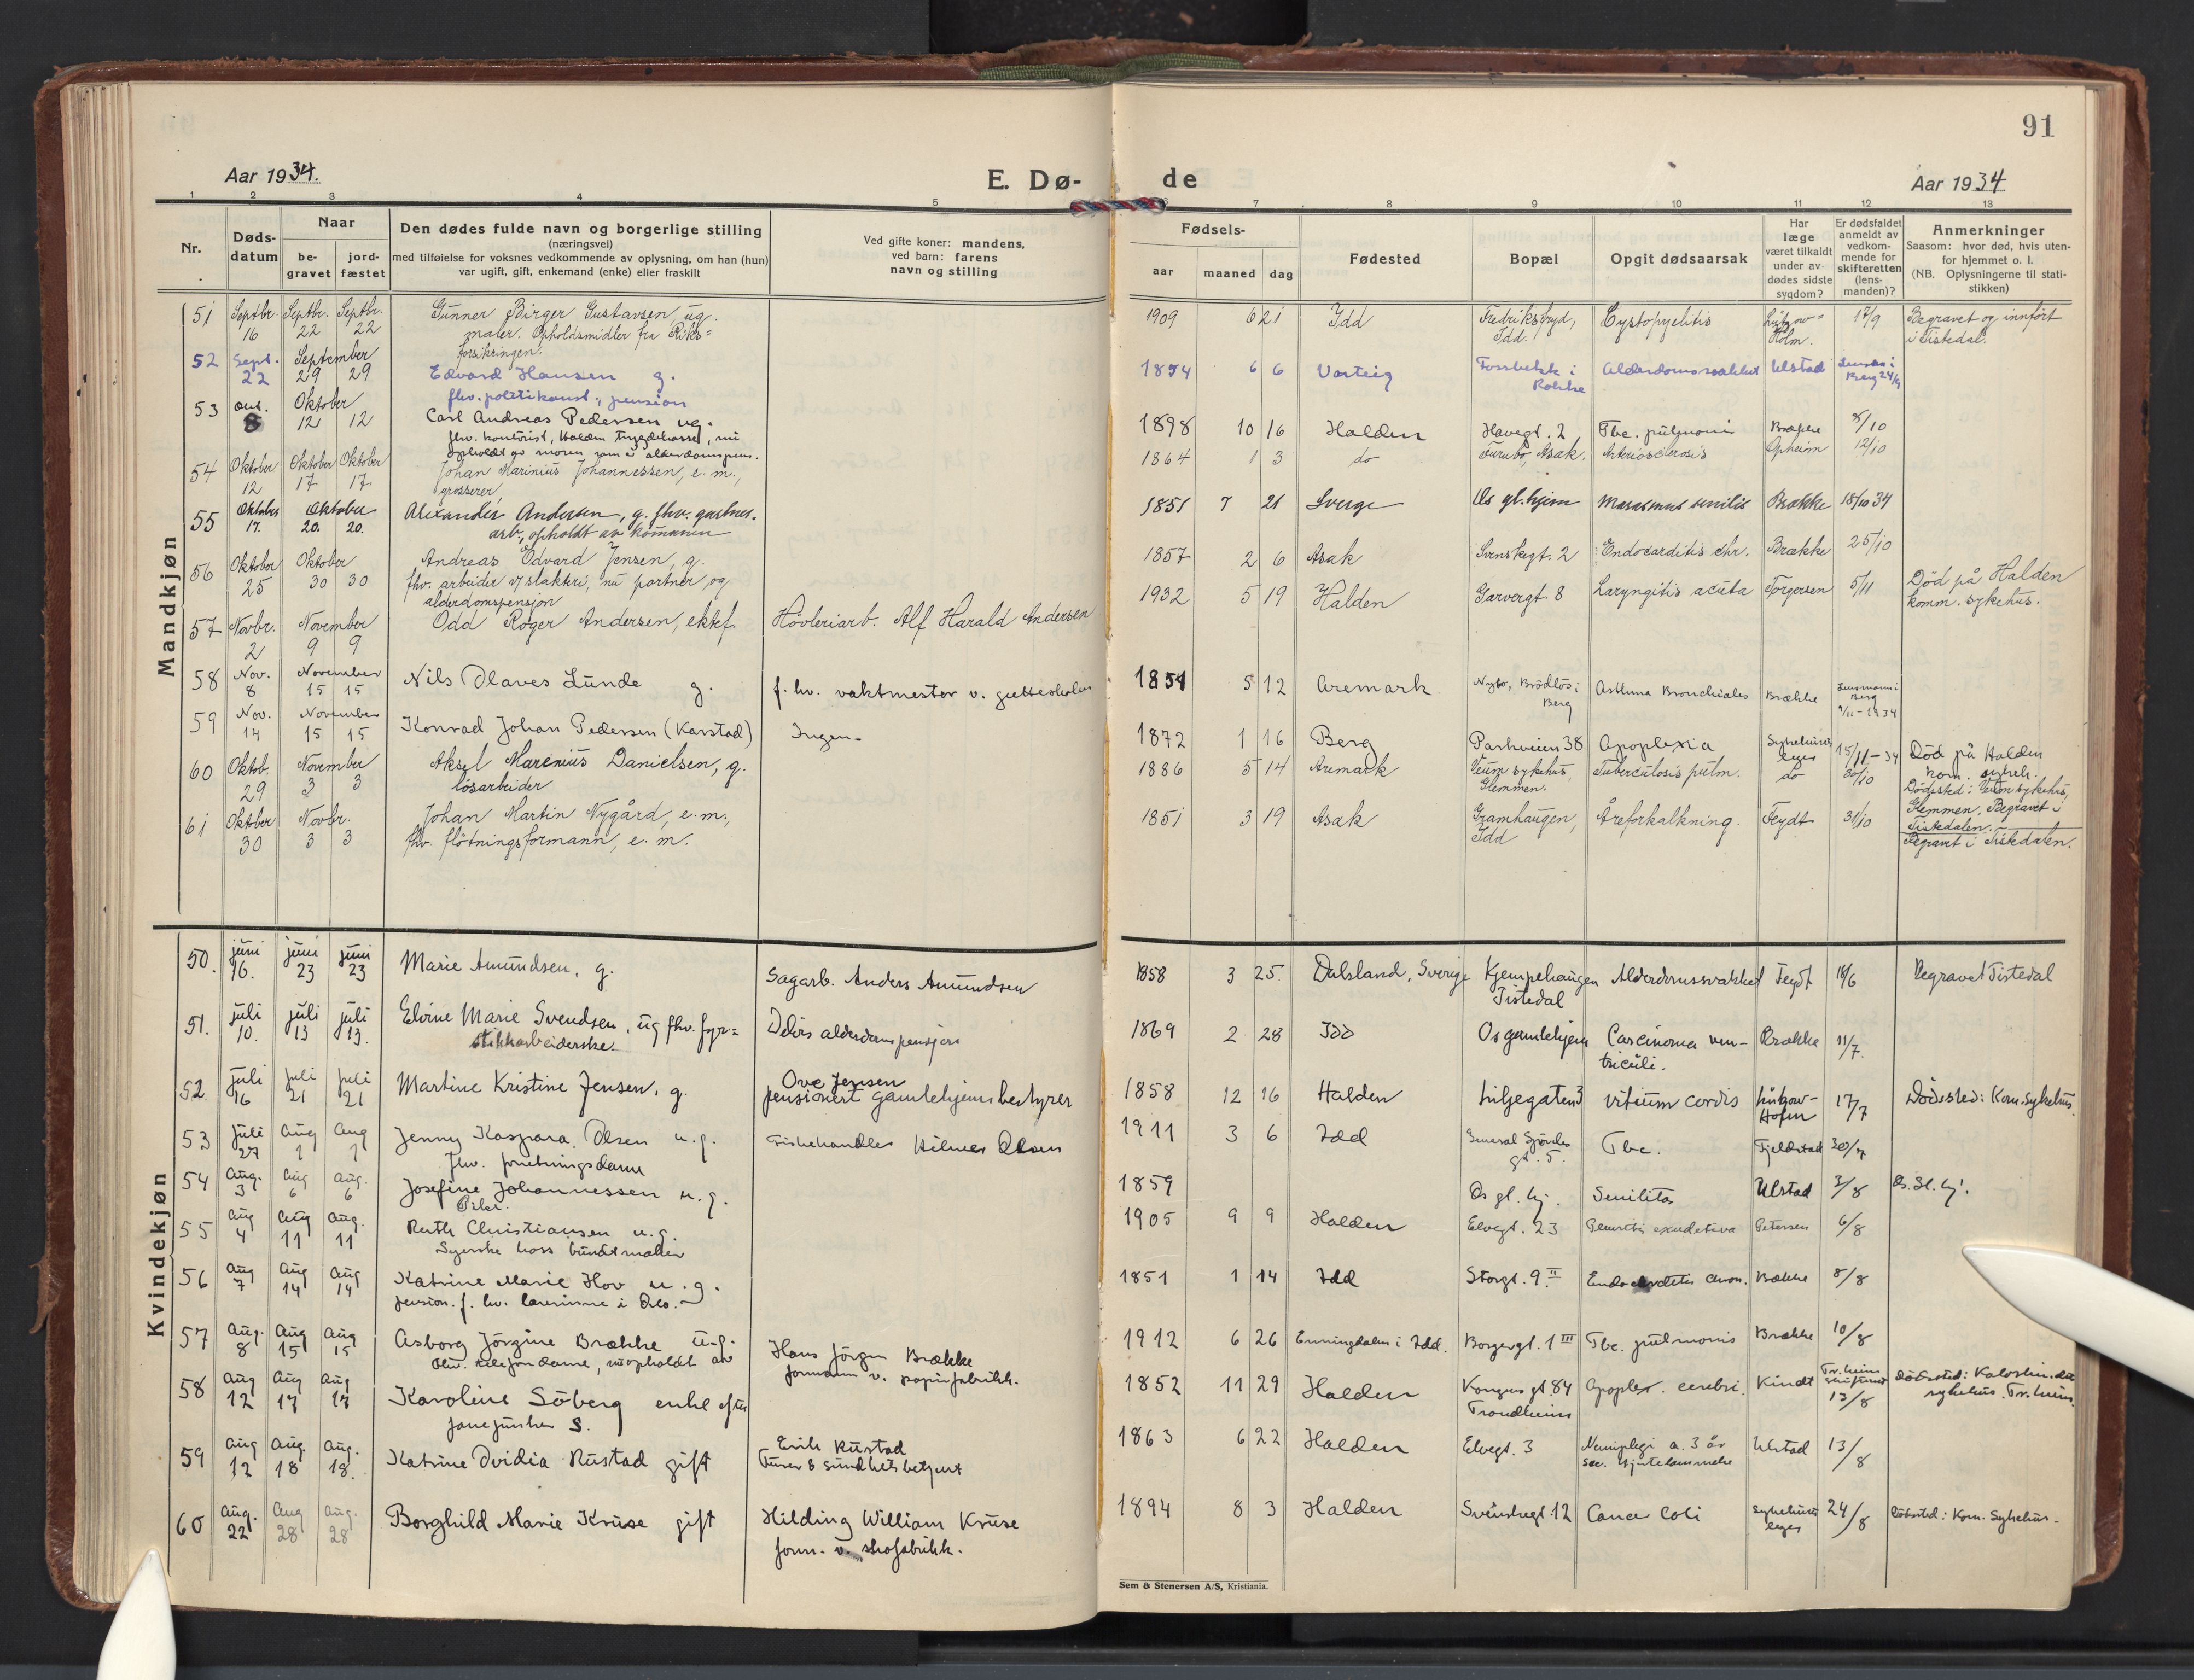 91
Aar 1934.
E. Dø-
de
Aar 1934
1 2 3 4 5 6 7 8 9 10 11 12 13
Nr.
Døds-
datum
Naar
be-
gravet
jord-
fæstet
Den dødes fulde navn og borgerlige stilling
(næringsvei)
med tilføielse for voksnes vedkommende av oplysning, om han (hun)
var ugift, gift, enkemand (enke) eller fraskilt
Ved gifte koner: mandens,
ved barn: farens
navn og stilling
Fødsels-
aar maaned dag
Fødested
Bopæl
Opgit dødsaarsak
Har
læge
været tilkaldt
under av-
dødes sidste
sygdom?
Er dødsfaldet
anmeldt av
vedkom-
mende for
skifteretten
(lens-
manden)?
Anmerkninger
Saasom: hvor død, hvis uten-
for hjemmet o. l.
(NB. Oplysningerne til stati-
stikken)
Mandkjøn
51 Septbr. 16 Septbr. 22 Septbr. 22 Gunner Birger Gustavsen, ug. 1909 6 21 Idd Fredriksfryd, Idd. Cystopyelitis Lützow-Holm. 17/9 Begravet og innført i Tistedal.
maler. Opholdsmidler fra Riks=
forsikringen.
52 Sept. 22 September 29 29 Edvard Hansen g. 1874 6 6 Varteig Fossbekk i Rokke Alderdomssvakhet Ulstad Lensm. i Berg 24/9
fhv. politikonst., pension
53 Okt. 8 Oktober 12 12 Carl Andreas Pedersen ug. 1898 10 16 Halden Havegt. 2 Tbc. pulmonis Brække 8/10
fhv. kontorist, Halden trygdekasse, nu
opholdt av moren som er alderdomspens.
54 Oktober 12 Oktober 17 Oktober 17 Johan Marinius Johannessen, e. m., 1864 1 3 do Furubo, Asak. Arteriosclerosis Opheim 12/10
grosserer,
55 Oktober 17. Oktober 20. 20. Alexander Andersen, g. fhv. gartner. 1851 7 21 Sverge Os gl. hjem Marasmus senilis Brække 18/10 34
arb., opholdt av kommunen
56 Oktober 25 Oktober 30 30 Andreas Edvard Jensen, g. 1857 2 6 Asak Svenskegt. 2 Endocarditis chr. Brække 25/10
fhv. arbeider v/ slakteri, nu portner, og
alderdomspensjon
57 Novbr. 2 November 9 9 Odd Roger Andersen, ektef. Høvleriarb. Alf Harald Andersen 1932 5 19 Halden Garvergt. 8 Laryngitis acuta Torgersen 5/11 Død på Halden komm. sykehus.
58 Nov. 8 November 15 15 Nils Olaves Lunde g. f. hv. vaktmester v. gutteskolen 1854 5 12 Aremark Nybo, Brødløs i Berg Asthma Bronchiales Brække Lensmann i Berg 9/11 - 1934
59 Nov. 14 November 15 15 Konrad Johan Pedersen (Karstad) Ingen. 1872 1 16 Berg Parkveien 38 Apoplexia Sykehusets leges 15/11 - 34 Død på Halden kom. sykeh.
60 Oktob. 29 November 3 3 Aksel Marenius Danielsen, g. 1886 5 14 Aremark Veum sykehus, Glemmen. Tuberculosis pulm. do 30/10 Dødssted: Veum sykehus, Glemmen. Begravet i Tistedalen.
løsarbeider
61 Oktober 30 Novbr. 3 3 Johan Martin Nygård, e. m., 1851 3 19 Asak Gramhaugen, Idd Åreforkalkning. Feydt 31/10 Begravet i Tistedalen.
fhv. fløtningsformann, e. m.
Kvindekjøn
50. juni 16. juni 23 juni 23 Marie Amundsen, g. Sagarb. Anders Amundsen 1858 3 25. Dalsland, Sverige Kjempehaugen Tistedal Alderdomssvakhet Feydt 18/6 Begravet Tistedal
51. juli 10. juli 13 juli 13. Elvine Marie Svendsen, ug fhv. fyr= Delvis alderdomspensjon 1869 2 28 Idd Os gamlehjem Carcinoma ven- Brække 11/7.
stikkarbeiderske. triculi.
52 juli 16 juli 21 juli 21 Martine Kristine Jensen, g. Ove Jensen pensionert gamlehjemsbestyrer 1858 12 16 Halden Liljegaten 3 vitium cordis Lützow-Holm 17/7 Dødssted: Kom. Sykehus.
53 juli 27 Aug 1 Aug 1 Jenny Kaspara Olsen u. g. Fiskehandler Hilmer Olsen 1911 3 6 Idd General Gjerdes gt. 5. Tbc. Fjeldstad 30/7
fhv. forretningsdame
54 Aug. 3 Aug 6 Aug. 6 Josefine Johannessen u. g. 1859 Os gl. hj. Senilitas Ulstad 3/8 Os. gl. hj.
55 Aug 4 Aug 11 Aug. 11 Ruth Christiansen u. g. 1905 9 9 Halden Elvegt. 23 exudativa Petersen 6/8
Syerske hoss buntmaker
56 Aug 7 Aug 14 Aug 14 Katrine Marie Hov u. g. 1851 1 14 Idd Storgt. 9 II Endocarditis chron. Brække 8/8
pension. f. hv. lærerinne i Oslo.
57 Aug. 8 Aug 15 Aug 15 Asborg Jørgine Brække u.g. Hans Jørgen Brække 1912 6 26 Enningdalen i Idd. Borgergt. 1 III Tbc. pulmonis Brække 10/8
fhv. telefondame, u/opholdt av formann v. papirfabrikk.
58 Aug 12 Aug 17 Aug 17 Karoline Söberg enke efter 1852 11 29 Halden Kongens gt 84 Trondheim Apoplex. cerebri. Kindt Tr. heim skifterett 13/8 Dødssted: sykehus. Tr. heim.
S.
59 Aug 12 Aug. 18 Aug. 18. Katrine Ovidia Rustad gift Erik Rustad 1863 6 22 Halden Elvegt. 3 Hemiplegi a. 3 år Ulstad 13/8
sec. Hjertelammelse
60 Aug. 22 Aug 28 Aug. 28 Borghild Marie Kruse gift Hilding William Kruse 1894 8 3 Halden Svenskegt. 12 Cancer Coli Sykehusets leges 24/8 Dødssted: Kom. Sykehus.
form. v. skofabrikk.
Sem & Stenersen A/S, Kristiania.